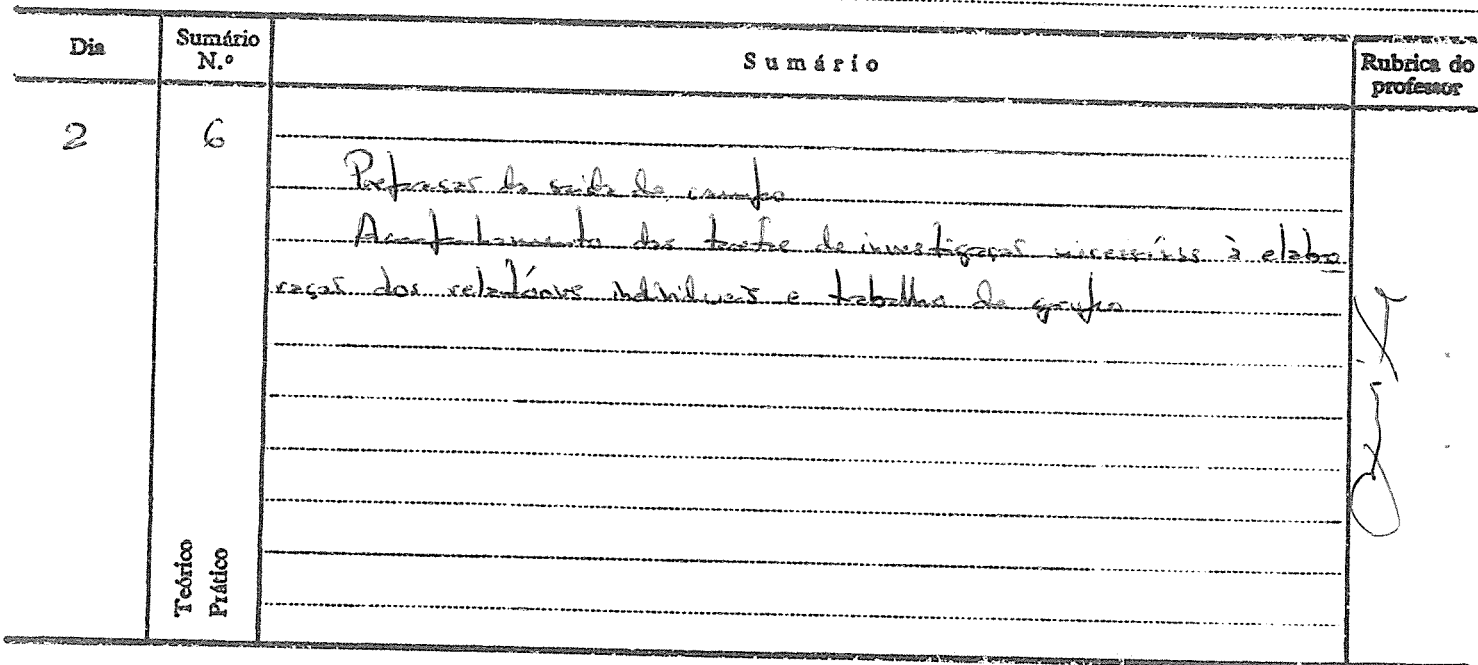 Dia
Sumário
N.º
Sumário
Rubrica do
professor
2
6
Preparaçaõ da saída de campo
Acompanhamento das de investigaçaõ necessárias à elabo
raçaõ dos relatórios individuais e trabalho de grupo
Teórico
Prático